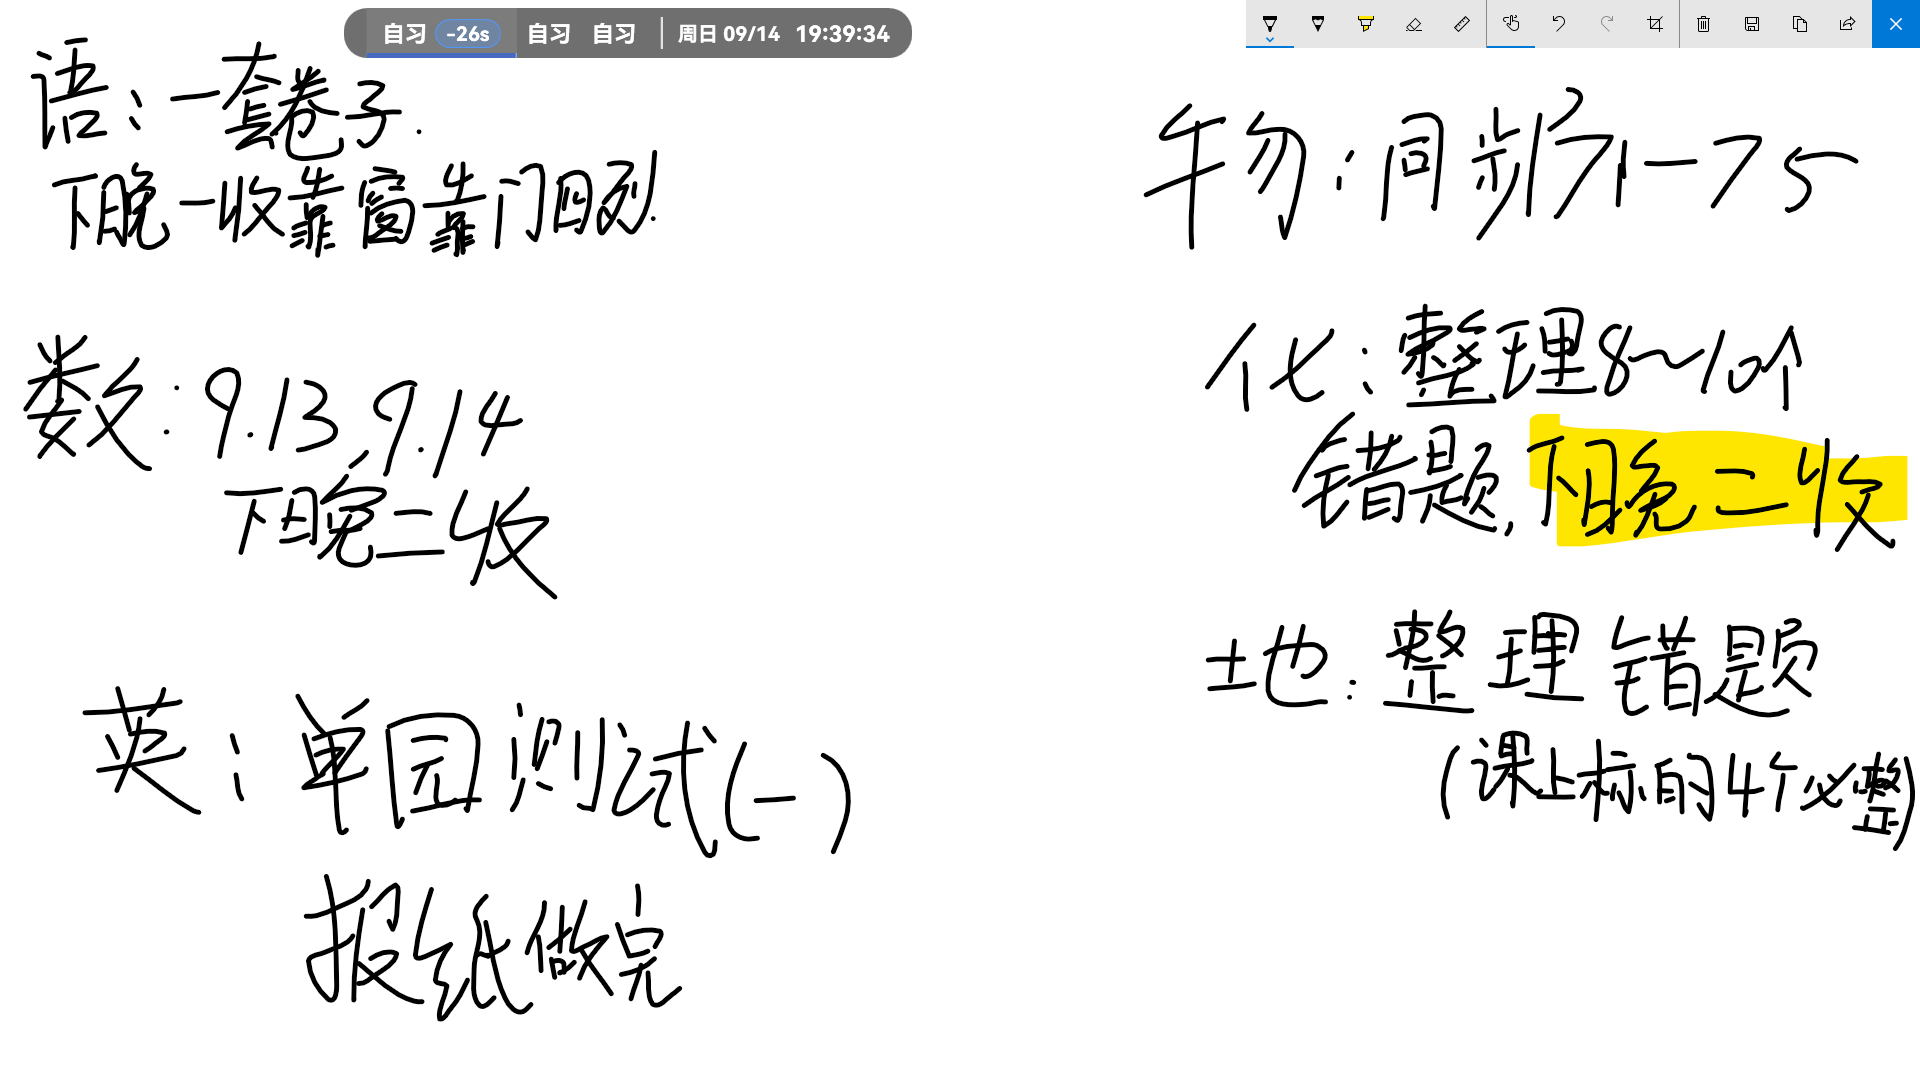 自习 -26s 自习 自习 周日 09/14 19:39:34
语：一套卷子.
下晚一收靠窗靠门四列.
数：9.13，9.14
下晚二收
英：单园测试(一)
报纸做完
物：同步P71-75
化：整理8~10个
错题,下晚二收
地：整理错题
(课上标的4个必整)